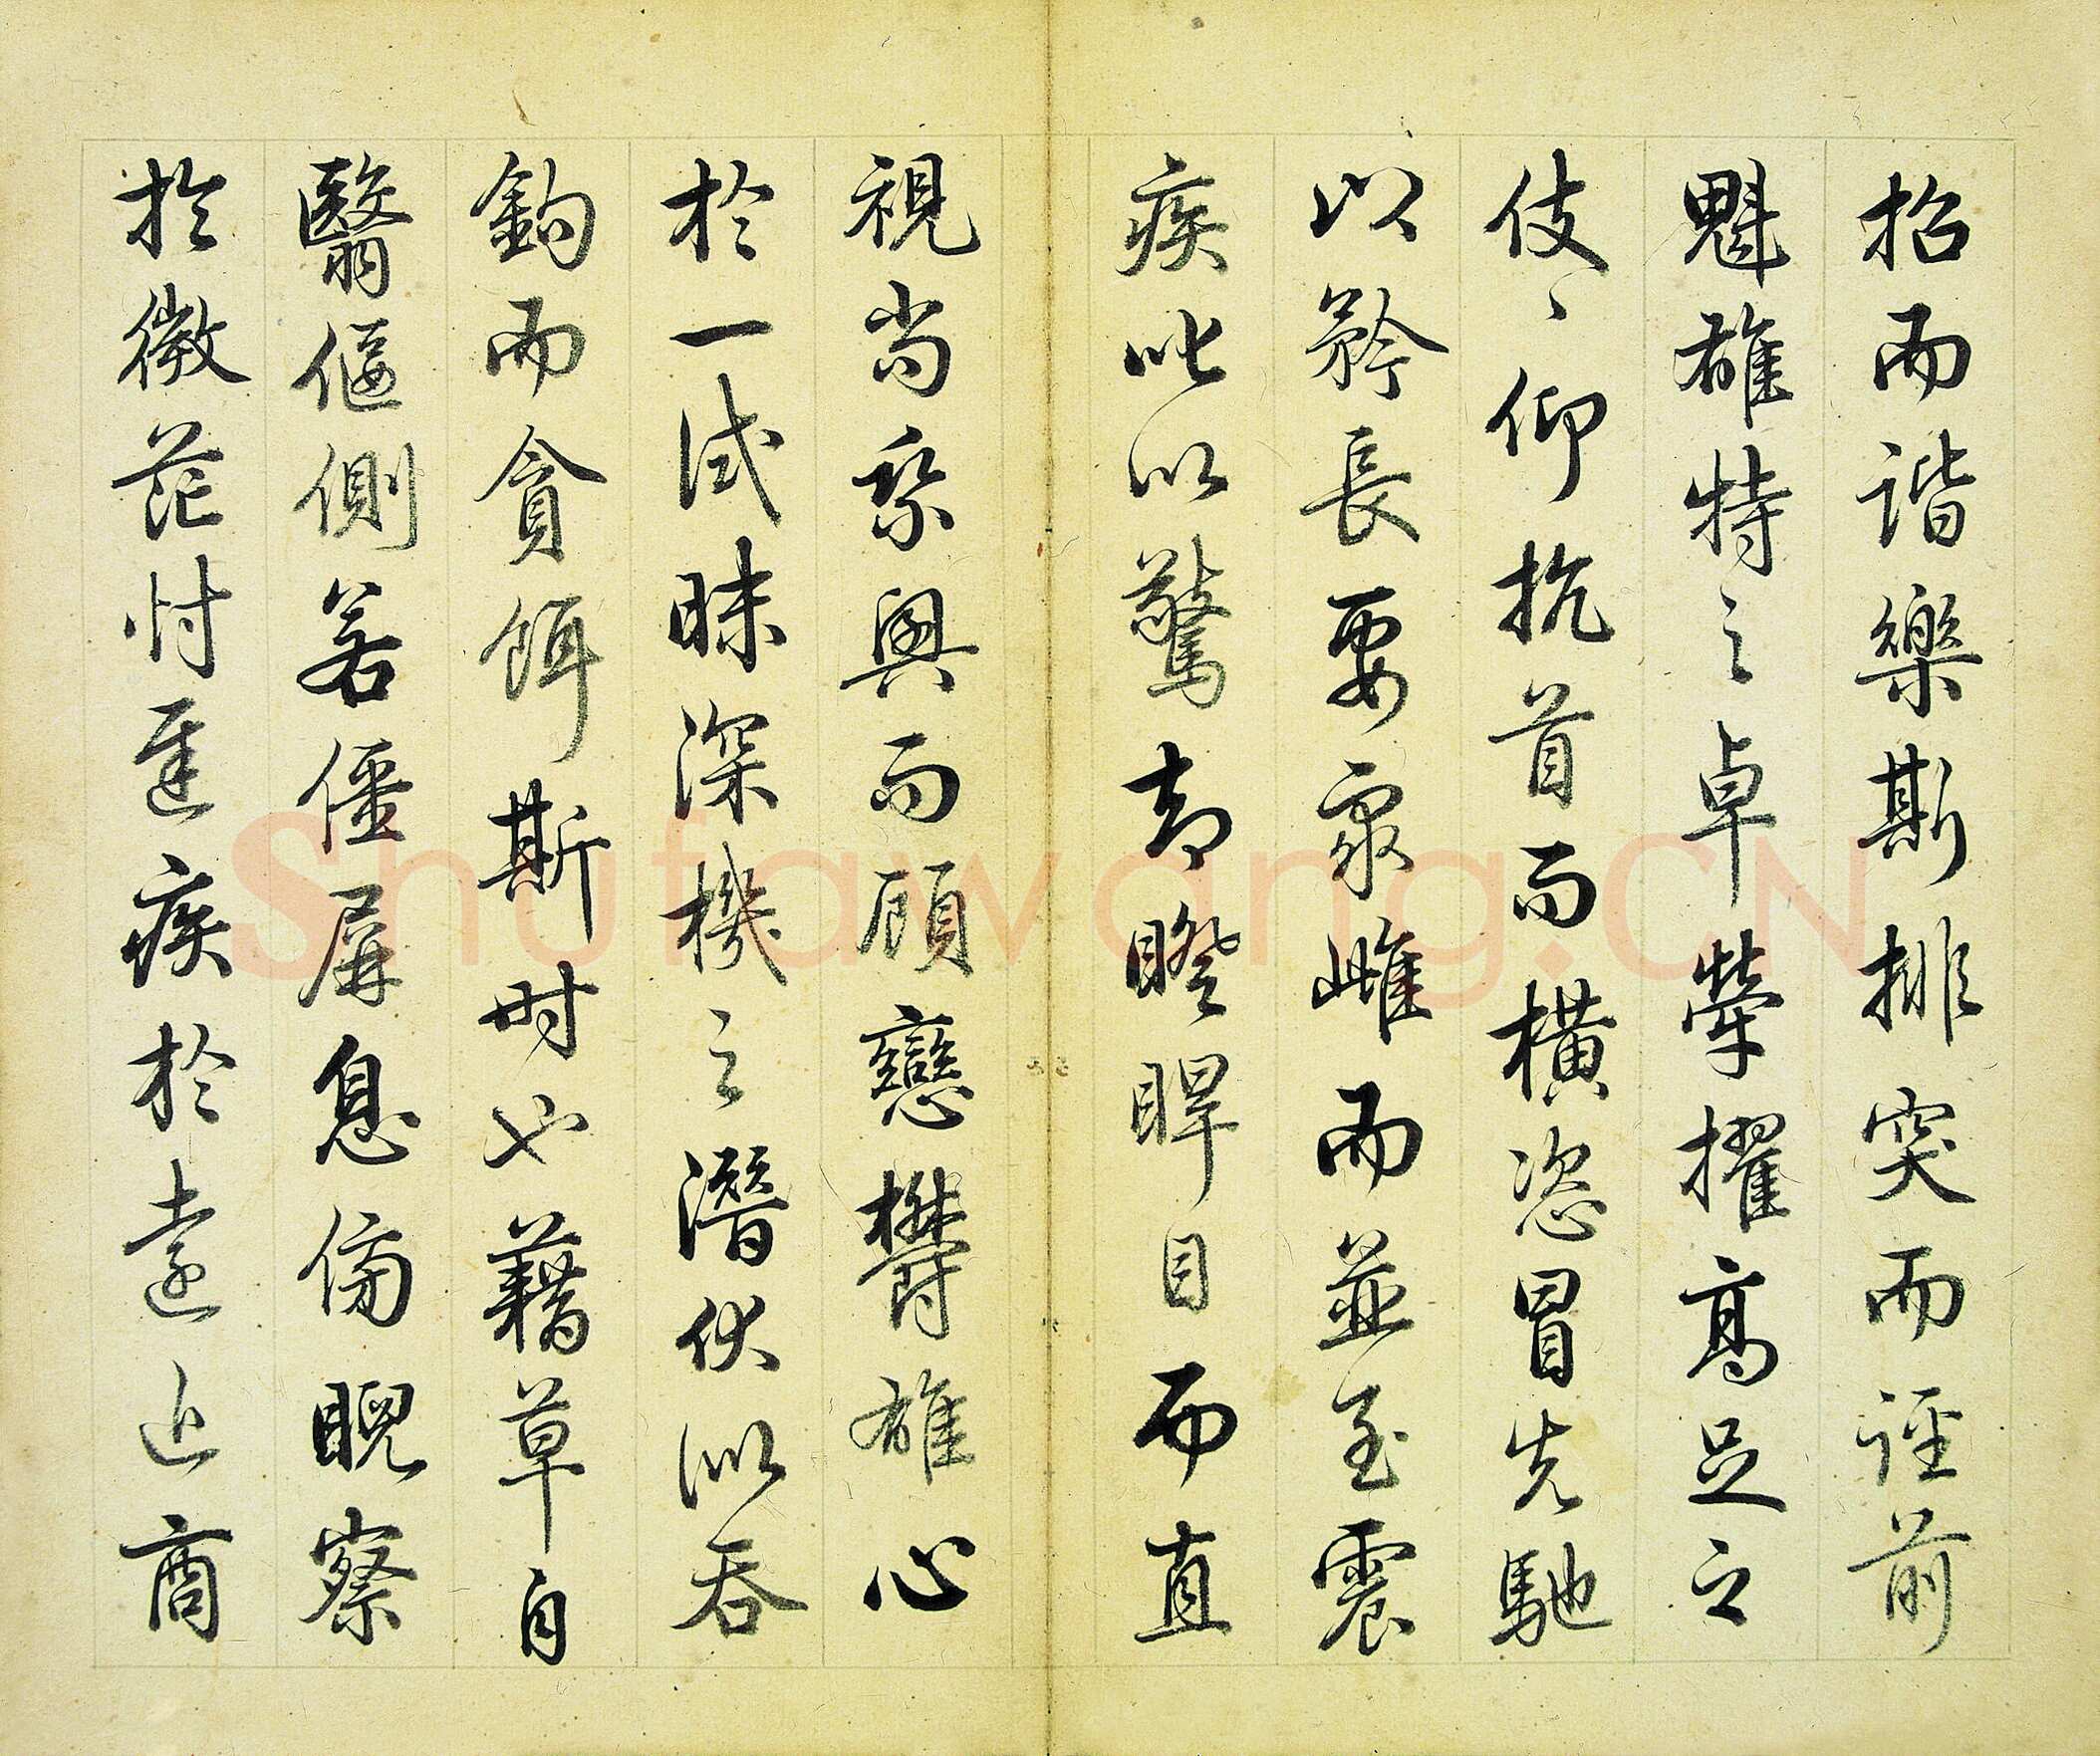 招而諧樂斯排突而誙前
魁雄特之卓犖擢高足之
伎〻仰抗首而橫恣冒先馳
以矜長要衆雌而並至震
疾叱以驚却睽睅目而直
視尚而顧戀鬱雄心
於一試昧深機之潛伏似吞
鉤而貪餌斯時也藉草自
翳偃側若僵屏息傍睨察
於微茫忖遲疾於遠近商
Shufawang.CN